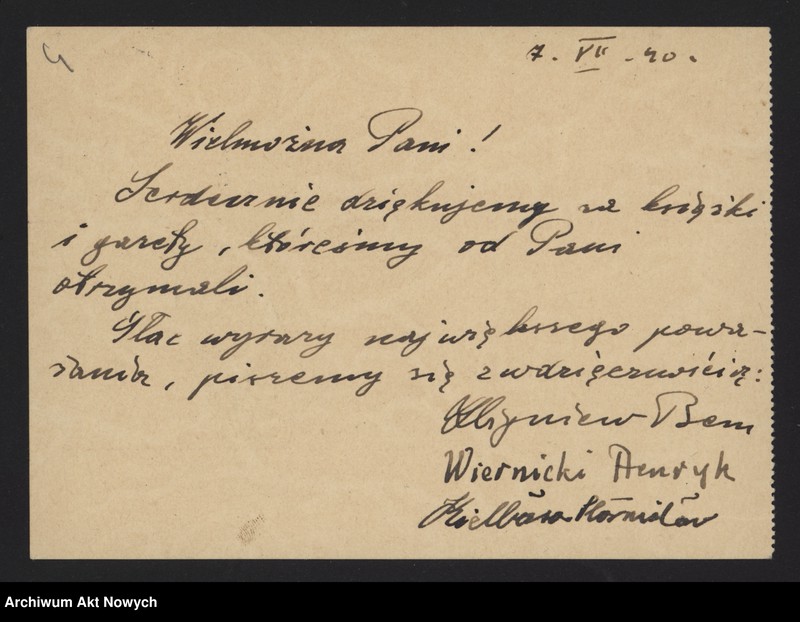 7. VII - 40.
Wielmożna Pani!
Serdecznie dziękujemy za książki
i gazety, któreśmy od Pani
otrzymali.
Śląc wyrazy największego powa-
żania, piszemy się z wdzięcznością:
Zbigniew Bem
Wiernicki Henryk
Kiełbasa
Archiwum Akt Nowych